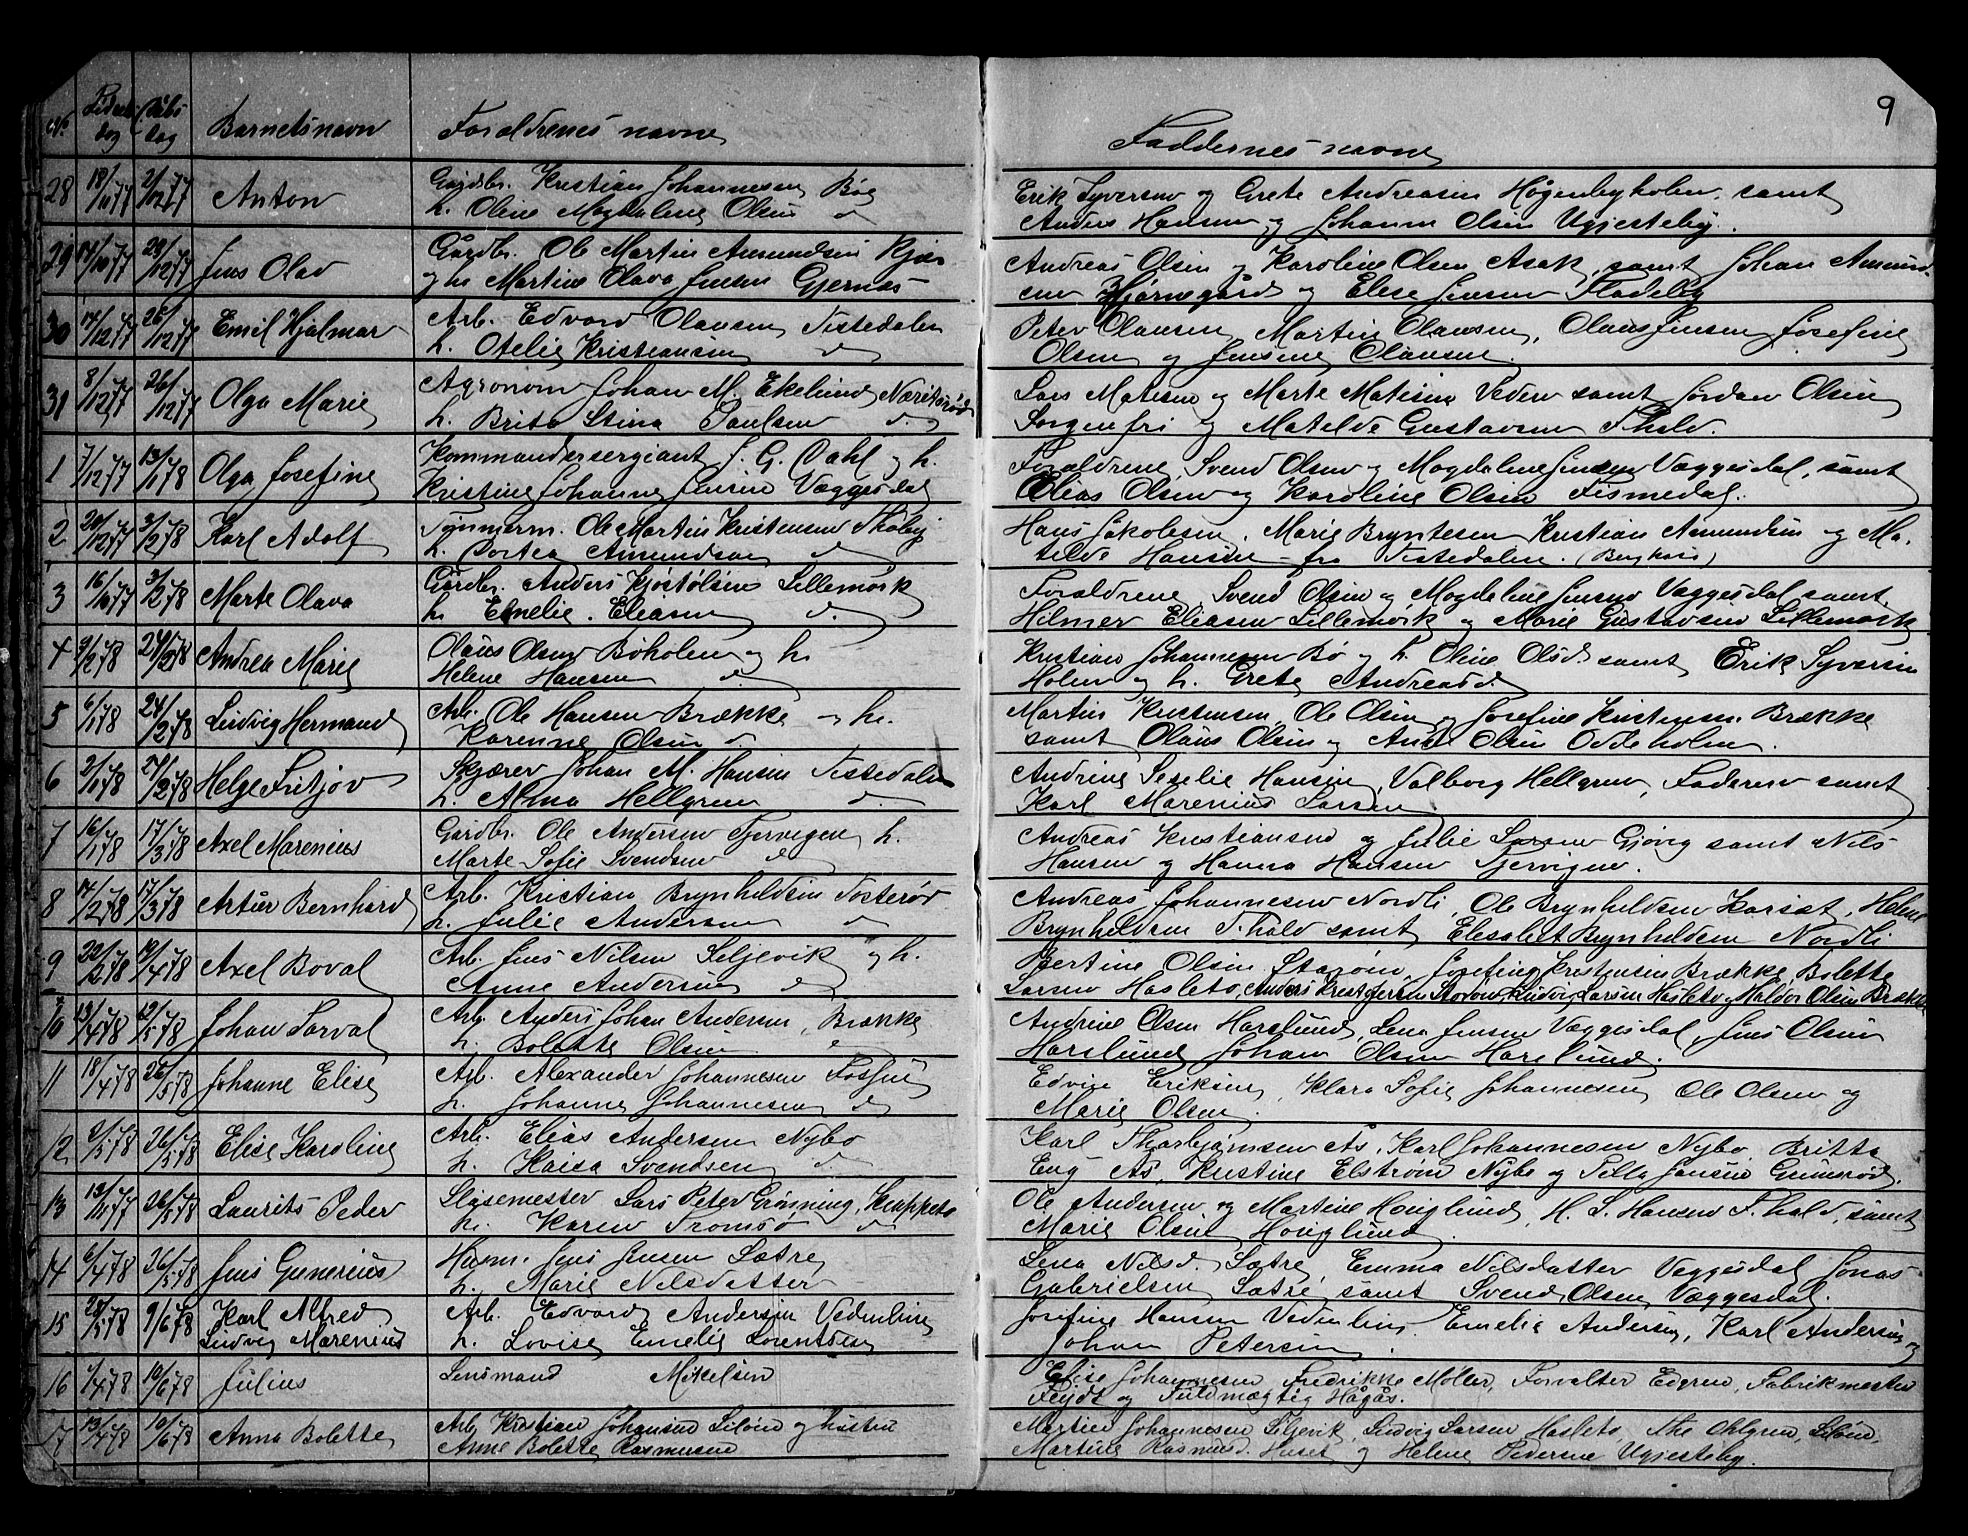 9
No Fødsels dag Dåbs dag Barnetsnavn Foraldrenes navne Faddernes navne
28 18/10 77 2/12 77 Anton Gårdbr. Kristian Johannesen Bøe
h. Oline Magdalene Olsen d
Erik Syversen og Grete Andreasen Høgenbyholen, samt
Anders Hansen og Johanne Olsen Ugjesteby.
29 14/10 77 29/12 77 Jens Olav Gårdbr. Ole Martin Amundsen Kjær
og h. Martine Olava Jensen Gjernæs
Andreas Olsen og Karoline Olsen Asak, samt Johan Amund-
sen Hjørnegård og Elise Jensen Fladeby
30 14/12 77 26/12 77 Emil Hjalmar Arb. Edvard Olausen Tistedalen
h. Otelie Kristiansen d
Peter Olausen, Martin Olausen, Olaus Jensen Josefine
Olsen og Jensine Olausen.
31 8/12 77 26/12 77 Olga Marie Agronom Johan M. Ekelund Nærisrød
h. Brita Stina Paulsen d.
Lars Matisen og Marte Matisen Veden samt Jørdan Olsen
Sorgenfri og Matelde Gustavsen F.hald.
1 7/12 77 13/1 78 Olga Josefine Kommandersergiant J. G. Dahl og h.
Kristine Johanne Jensen Væggesdal
Foraldrene, Svend Olsen og Magdaline Jensen Væggesdal, samt
Elias Olsen og Karoline Olsen Fismedal.
2 20/12 77 3/2 78 Karl Adolf Tømmerm. Ole Martin Kristensen
h. Dortea Amundsen d
Hans Jakobsen, Marie Bryntesen Kristian Amundsen og Ma-
tilde Hansen — fra Tistedalen. (Berghaus)
3 16/10 77 3/2 78 Marte Olava Gårdbr. Anders Kjøstolsen Lillemørk
h. Emelie Eleasen d.
Foraldrene Svend Olsen og Magdeline Jensen Væggesdal samt
Helmer Eliasen Lillemørk og Marie Gustavsen Lillemørk
4 9/2 78 24/2 78 Andrea Marie Olaus Olsen Bøholen og h.
Helene Hansen d
Kristian Johannesen Bø og h. Oline Olsd. samt Erik Syversen
Holen og h. Grete Andreasd.
5 6/1 78 24/2 78 Ludvig Hermand Arb. Ole Hansen Brække og h.
Karenne Olsen d.
Martin Kristensen, Ole Olsen og Josefine Kristensen Brække
samt Olaus Olsen og Olsen Oddeholen.
6 2/1 78 24/2 78 Helge Fritjov Skjærer Johan M. Hansen Tistedalen
h. Alma Hellgren d.
Andrine Seselie Hansen, Valborg Hellgren, Faderen samt
Karl Marenius Larsen
7 16/1 78 17/3 78 Axel Marenius Gårdbr. Ole Andersen Tjervigen h.
Marte Sofie Svendsen d
Andreas Kristiansen og Julie Larsen Gjøvig samt Nils
Hansen og Hanna Hansen Tjervigen.
8 14/2 78 17/3 78 Artur Bernhard Arb. Kristian Brynheldsen Tosterød
h. Julie Andersen d
Andreas Johannesen Nordli, Ole Brynheldsen Karset, Helene
Brynheldsen F.hald samt Elesabet Brynheldsen Nordli
9 22/2 78 19/4 78 Axel Boval Arb. Jens Nilsen Siljevik og h.
Anne Andersen d
Bertine Olsen Storøen, Josefine Kristensen Brække, Bolette
Larsen Hasleto, Anders Kristofersen Storøen, Ludvig Larsen Hasleto, Haldor Olsen Brække
10 13/4 78 12/5 78 Johan Torval Arb. Anders Johan Andersen, Brække
h. Bolette Olsen d
Andrine Olsen Harslund, Lena Jensen Væggesdal, Jens Olsen
Harslund Johan Olsen Harslund.
11 18/4 78 26/5 78 Johanne Elise Arb. Alexander Johannesen
h. Johanne Johannesen d
Edvin Eriksen, Klara Sofie Johannesen Ole Olsen og
Marie Olsen.
12 2/5 78 26/5 78 Elise Karoline Arb. Elias Andersen Nybo
h. Kaisa Svendsen d.
Karl Thorbjørnsen Ås, Karl Johannesen Nybo, Britta
Eng Ås, Kristine Elstrøm Nybo og Pella Jansen Grimsrød.
13 26/5 78 Laurits Peder Slusemester Lars Peter Grønning
h. Karen Tromsø d
Ole Andersen og Martine Honglund, H. S. Hansen F.hald, samt
Marie Olsen Honglund.
14 6/4 78 26/5 78 Jens Gunerius Husm. Jens Jensen Sætre
h. Marie Nilsdatter
Lena Nilsd. Sætre, Emma Nilsdatter Veggesdal, Jonas
Gabrielsen Sætre, samt Svend Olsen, Væggesdal.
15 28/5 78 9/6 78 Karl Alfred
Ludvig Marenius Arb. Edvard Andersen Vedenlien
h. Lovise Emelie Lorentsen
Josefine Hansen Vedenlien, Emelie Andersen, Karl Andersen og
Johan Petersen.
16 1/4 78 10/6 78 Julius Lensmand Mikelsen
Elise Johannesen, Fredrikke Møller, Forvalter Edgren, Fabrikmester
Fejdt og Fuldmægtig Hågås.
17 13/4 78 10/6 78 Anna Bolette Arb. Kristian Johansen Liløen og hustru
Anne Bolette Rasmusen
Martin Johannesen Siljevik, Ludvig Larsen Hasleto, Ohlgren, Liløen,
Martine Rasmusd. Huset og Helene Pedersen Ugjesteby.